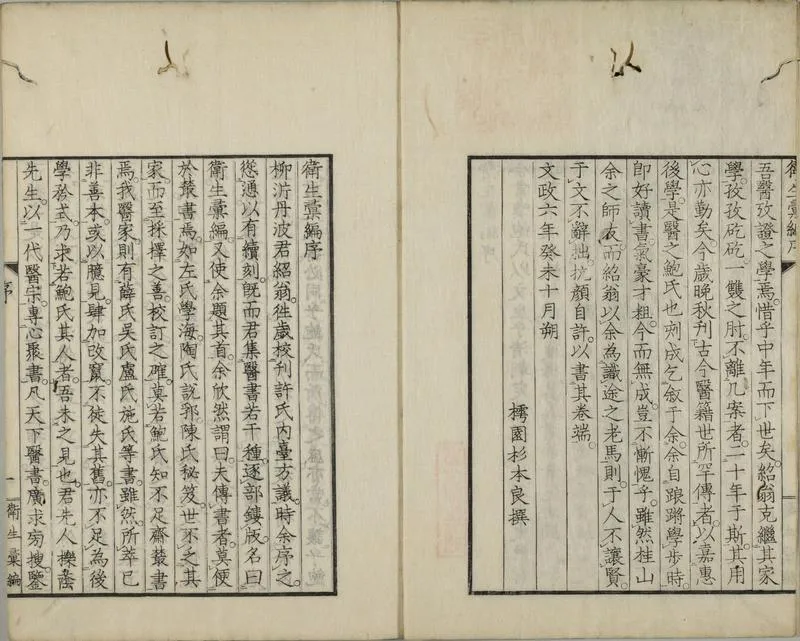 衛生彙編序
吾醫攷證之學焉。惜乎中年而下世矣。紹翁克繼其家
學。孜孜矻矻。一雙之肘。不離几案者。二十年于斯。其用
心亦勤矣。今歲晚秋刊古今醫籍世所罕傳者。以嘉惠
後學。是醫之鮑氏也。刻成乞敘于余。余自踉蹡學步時。
即好讀書。氣豪才粗。今而無成。豈不慚愧乎。雖然桂山
余之師友。而紹翁以余為識途之老馬。則于人不讓賢。
于文不辭拙。抗顏自許。以書其卷端。
文政六年癸未十月朔
樗園杉本良撰
衛生彙編序
柳沜丹波君紹翁。往歲校刊許氏內臺方議。時余序之。
慫通以有續刻。既而君集醫書若干種。逐部鏤版。名曰
衛生彙編。又使余題其首。余欣然謂曰。夫傳書者。莫便
於叢書焉。如左氏學海。陶氏說郛。陳氏秘笈。世不乏其
家。而至採擇之善。校訂之確。莫若鮑氏知不足齋叢書
焉。我醫家則有薛氏吳氏盧氏施氏等書。雖然。所萃已
非善本。或以臆見。肆加改竄。不徒失其舊。亦不足為後
學矜式。乃求若鮑氏其人者。吾未之見也。君先人櫟蔭
先生。以一代醫宗。專心聚書。凡天下醫書。廣求旁搜。鑒
序
一
衛生彙編